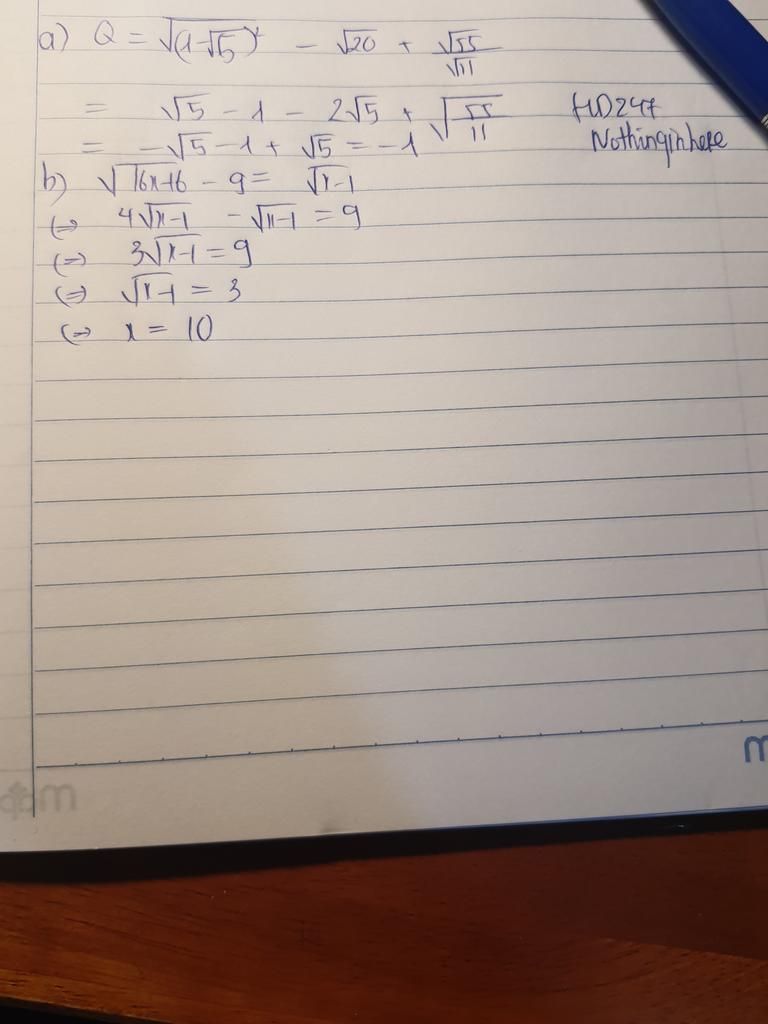 a) Q = √(1-√5)² - √20 + √55/√11
= √5 - 1 - 2√5 + √(55/11)
HD247
Nothinginhere
= -√5 - 1 + √5 = -1
b) √16x-16 - 9 = √x-1
(=) 4√x-1 - √x-1 = 9
(=) 3√x-1 = 9
(=) √x-1 = 3
(=) x = 10
m